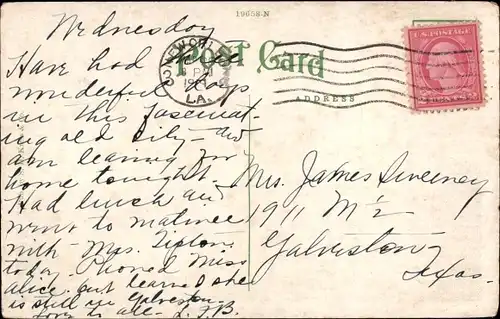 19658-N
Post Card
ADDRESS
NEW OR
LA.
U.S. POSTAGE
Wednesday
Have had
wonderful days
in this fascinat-
ing old city - and
am leaving for
home tonight.
Had lunch and
went to matinee
with Mrs. Tipton
today. Phoned Miss
Alice, but learned she
is still in Galveston.
Love to all - L.F.B.
Mrs. James Sweeney
1911 M½
Galveston
Texas.